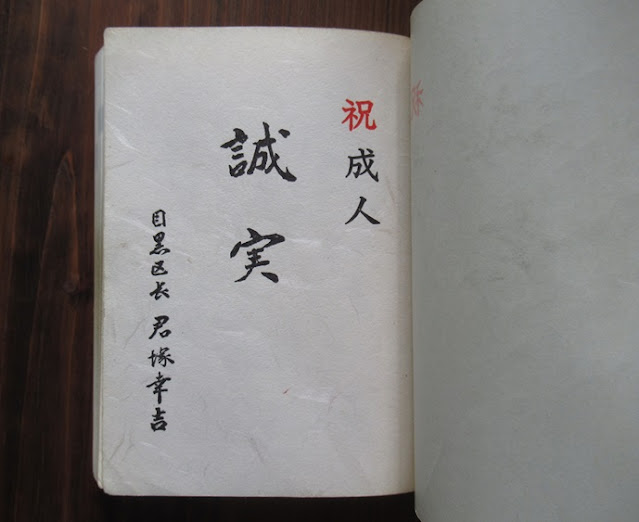 祝成人
誠実
目黒区長 君塚幸吉